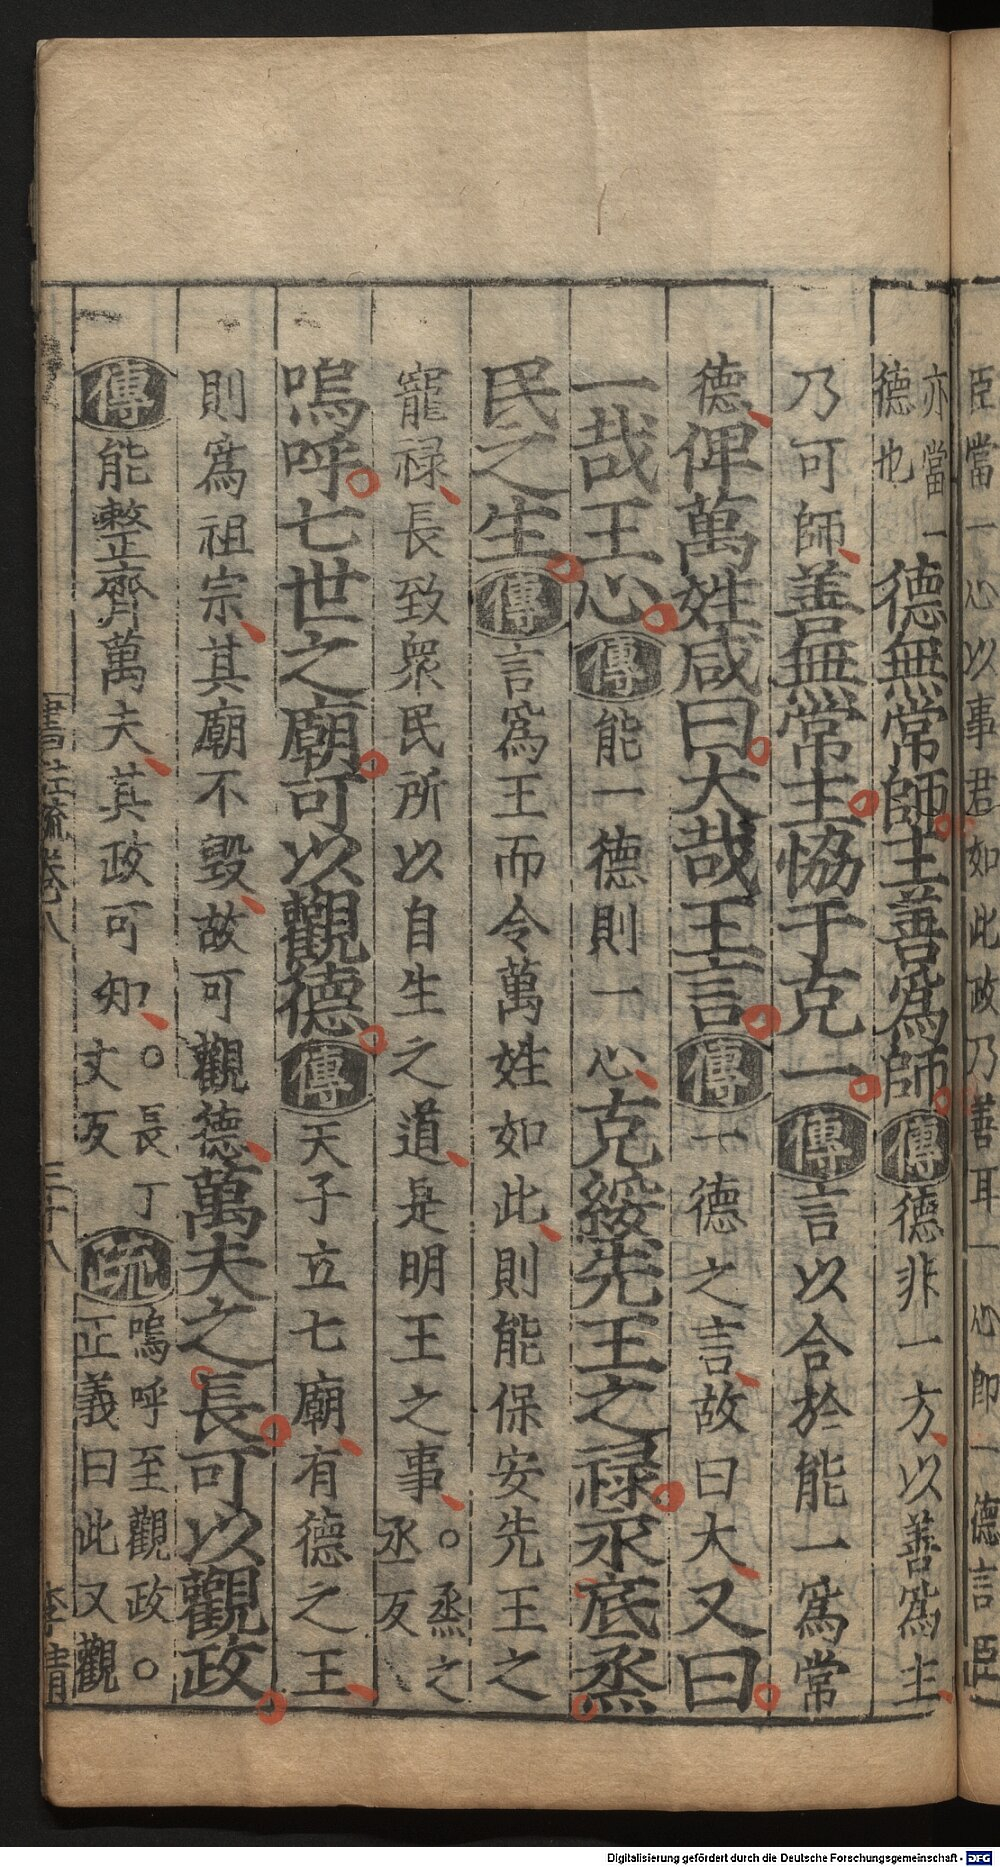 臣當一心以事君如此政乃善耳一心即一德言臣
亦當一
德也
德無常師主善爲師傳德非一方以善爲主
乃可師善無常主恊于克一傳言以合於能一爲常
德俾萬姓咸曰大哉王言傳一德之言故曰大又曰
一哉王心傳能一德則一心克綏先王之禄永底烝
民之生傳言爲王而令萬姓如此則能保安先王之
寵禄長致衆民所以自生之道是明王之事○烝之
丞反
嗚呼七世之廟可以觀德傳天子立七廟有德之王
則爲祖宗其廟不毀故可觀德萬夫之長可以觀政
傳能整齊萬夫其政可知○長丁
丈反
疏嗚呼至觀政○
正義曰此又觀
書注疏卷八
三十八
Digitalisierung gefördert durch die Deutsche Forschungsgemeinschaft - DFG